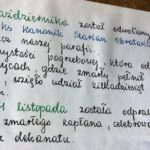 października został odwołany
ks. kanonik Marian
cz naszej parafii.
ystości pogrzebowej, która od
ejcach gdzie zmarły pełnił
wzięło udział kilkadziesiąt
4 listopada została odpra
zmarłego kapłana, celebrow
z dekanatu.